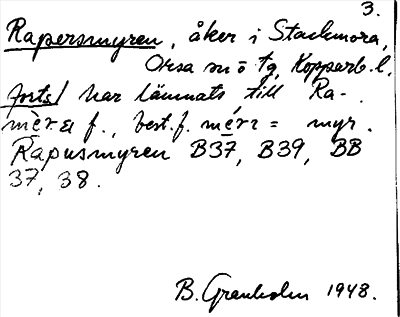 3.
Rapersmyren, åker i Stackmora,
Orsa sn ö tg, Kopparb. l.
forts/ har lämnats till Ra-
mèr & f., best. f. mérɛ = myr.
Rapusmyren B37, B39, BB
37, 38.
B. Granholm 1948.